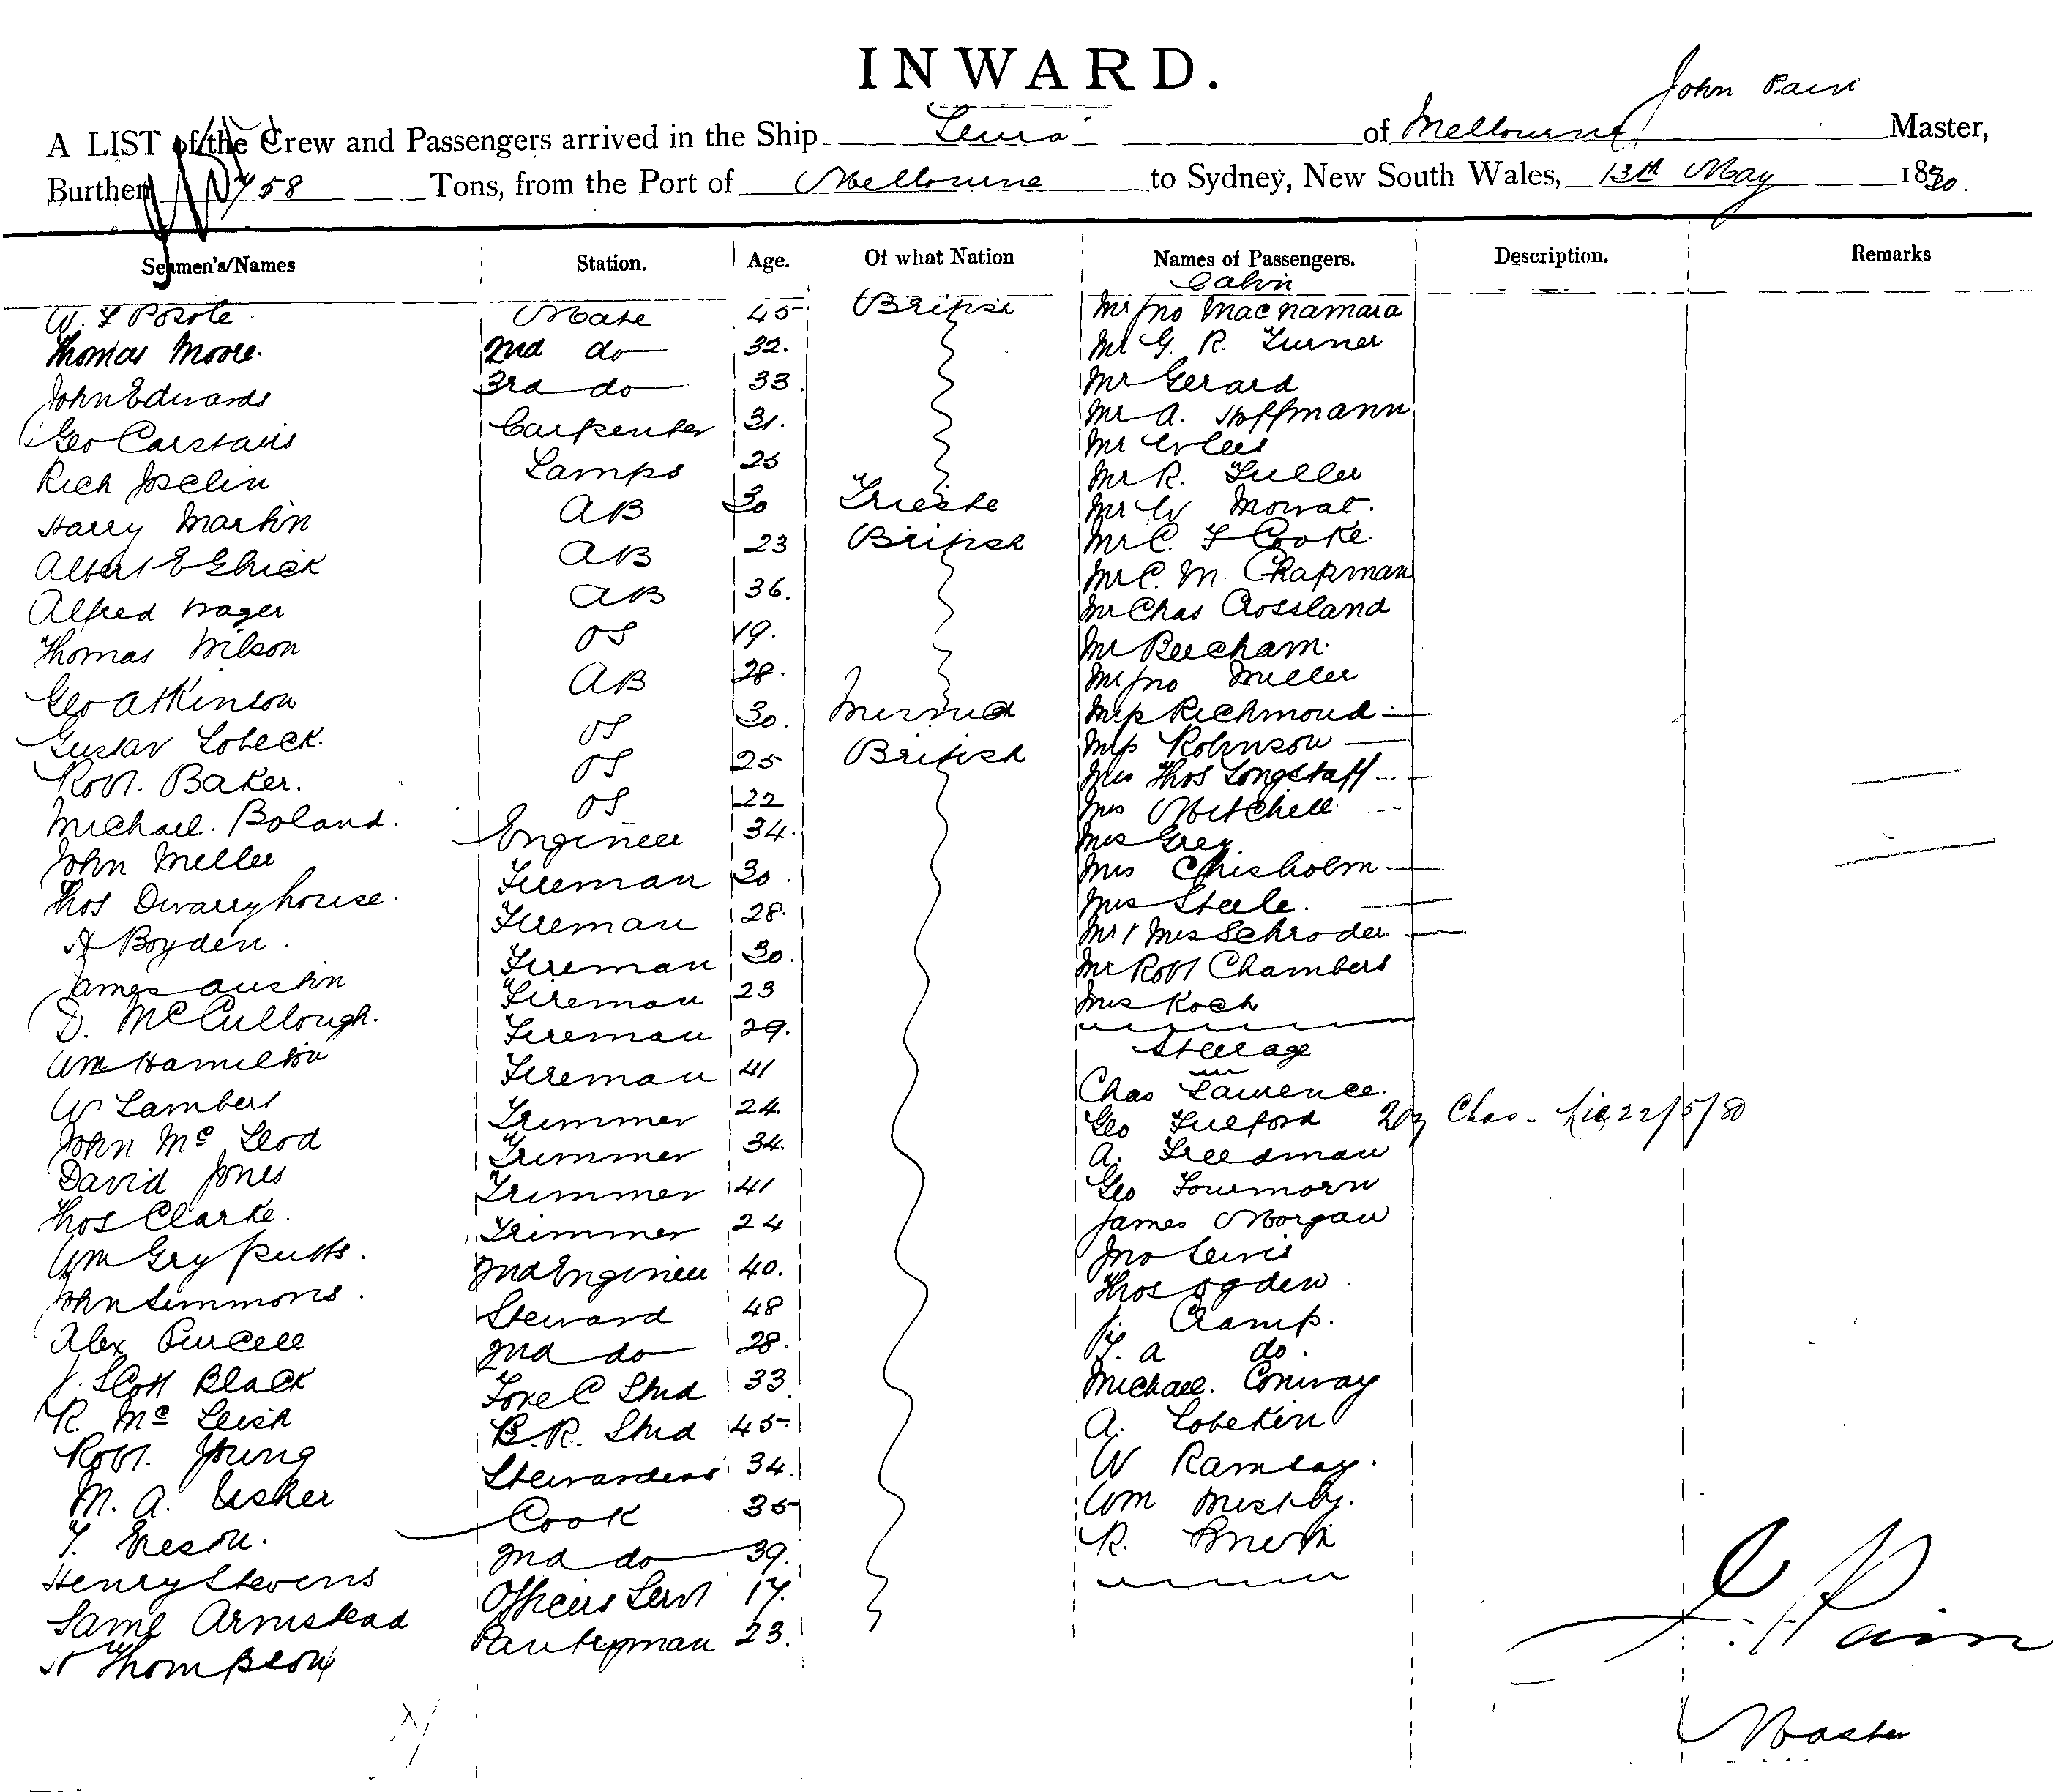 INWARD.
John Pain
A LIST of the Crew and Passengers arrived in the Ship of Melbourne Master,
Burthen 758 Tons, from the Port of Melbourne to Sydney, New South Wales, 13th May 1880.
Seamen's Names Station. Age. Of what Nation Names of Passengers. Description. Remarks
Cabin
W. F Poole Mate 45 British Mr Jno Macnamara
Thomas Moore. 2nd do 32. Mr G. R. Turner
John Edwards 3rd do 33 Mr Gerard
Geo Carstairs Carpenter 31. Mr A. Hoffmann
Rich Joselin Lamps 25 Mr
Harry Martin AB 30 Trieste Mr R. Fuller
Albert E AB 23 British Mr W Mowat.
Alfred Wager AB 36. Mr C. F Cooke.
Thomas Wilson OS 19. Mr C. M Chapman
Geo Atkinson AB 28. Mr Chas Crossland
Gustav Lobeck. OS 30. Mr Beecham.
Robt. Baker. OS 25 British Mr Jno Miller
Michael. Boland. OS 22 Miss Richmond
John Miller Engineer 34. Miss Robinson
Thos Dwarryhouse. Fireman 30. Mrs Thos Longstaff
A Boyden. Fireman 28. Mrs Mitchell
James Austin Fireman 30. Mrs Grey.
D. McCullough. Fireman 23 Mrs Chisholm
Wm Hamilton Fireman 29. Mrs Steele.
W Lambert Fireman 41 Mr & Mrs Schroder
John Mc Leod Trimmer 24. Mr Robt Chambers
David Jones Trimmer 34. Mrs Koch
Thos Clarke. Trimmer 41 Steerage
Wm Trimmer 24 Chas Lawrence.
John Simmons. 2nd Engineer 40. Geo Fulford Chas 22/5/80
Alex Purcell Steward 48 A. Freedman
J. Scott Black 2nd do 28. Geo
R. Mc Leish Fore C Stwd 33 James Morgan
Robt. Young B.R. Stwd 45 Jno Lewis
M. A. Usher Stewardess 34. Thos Ogden.
T. Cook 35 J. Cramp.
Henry Stevens 2nd do 39. T. A do.
Saml Armstead Officers Servt 17. Michael. Conway
Thompson Pantryman 23. A.
W Ramsay.
Wm
R. Smith
J. Pain
Master